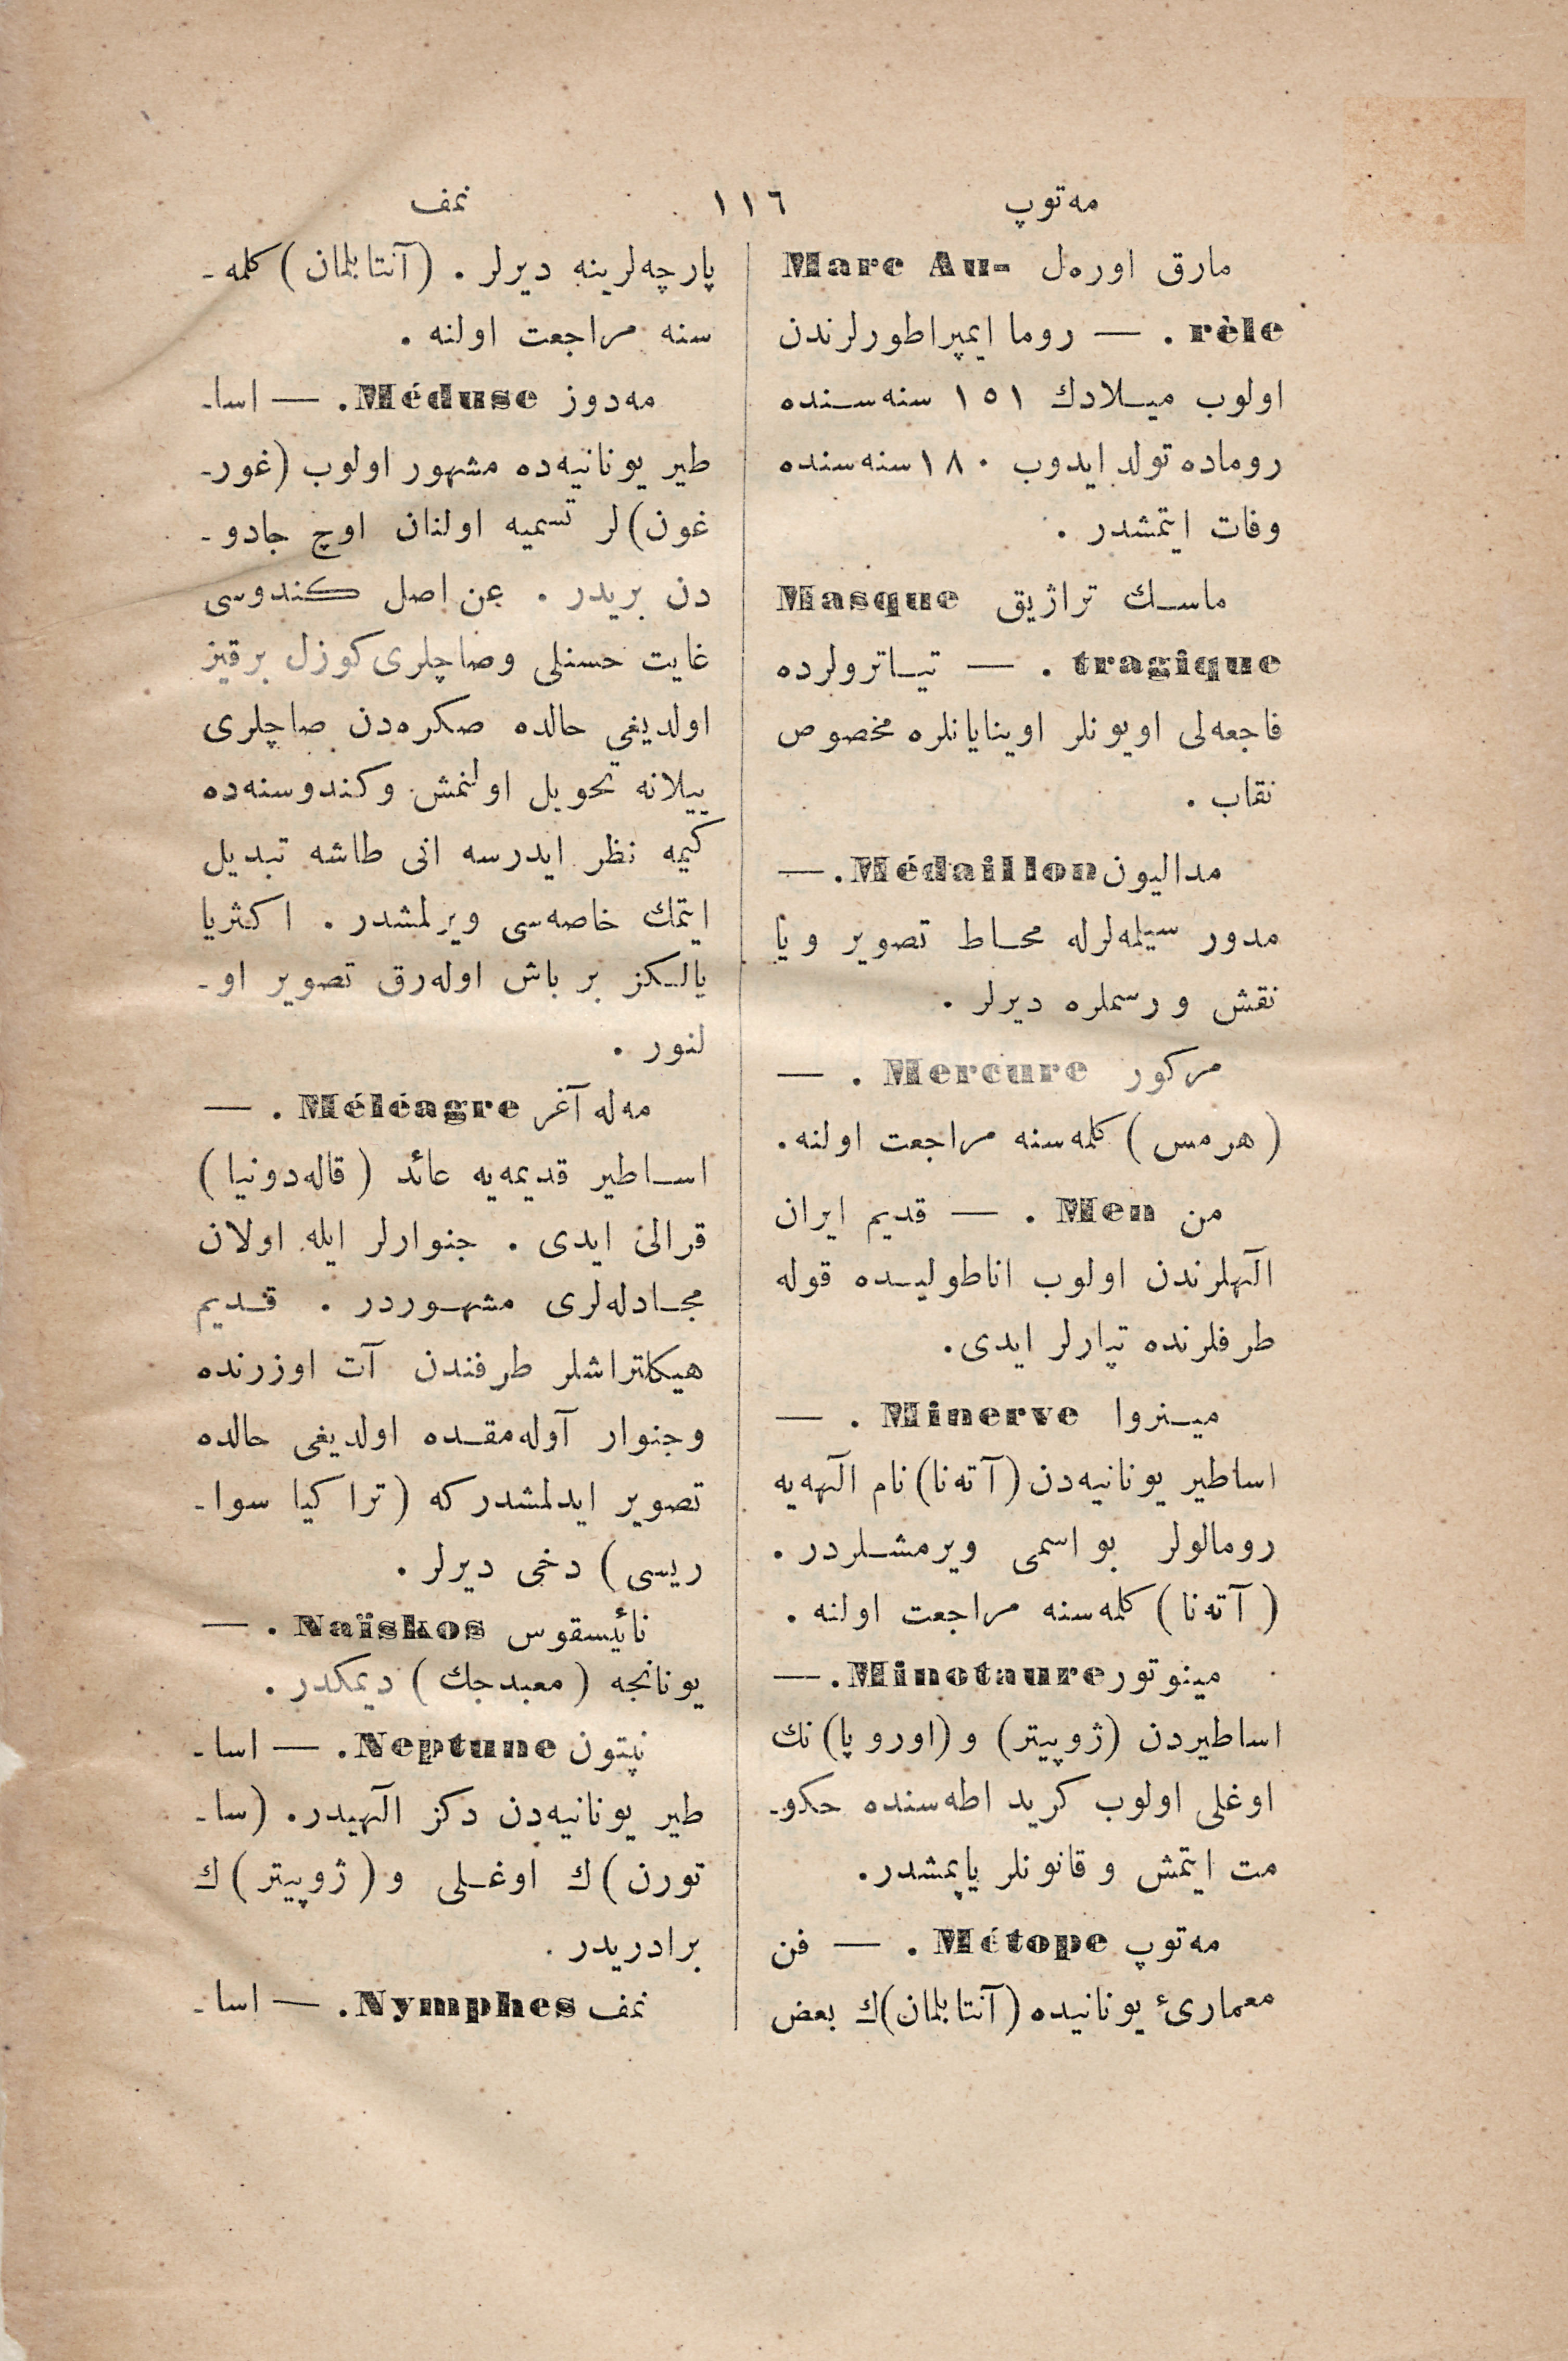 مه‌توپ
١١٦
نمف
مارق اوره‌ل Marc Au-
rèle . — روما ایمپراطورلرندن
اولوب میــلادك ١٥١ سنه‌ســنده
روماده تولد ایدوب ١٨٠ سنه‌سنده
وفات ایتمشدر .
ماســك تراژیق Masque
tragique . — تیــاترولرده
فاجعه‌لی اویونلر اوینایانلره مخصوص
نقاب .
مدالیون Médaillon. —
مدور سیلمه‌لرله محــاط تصویر ویا
نقش و رسملره دیرلر .
مرکور Mercure . —
( هرمس ) کلمه‌سنه مراجعت اولنه.
من Men . — قدیم ایران
الٓهلرندن اولوب اناطولیــده قوله
طرفلرنده تپارلر ایدی.
میــنروا Minerve . —
اساطیر یونانیه‌دن (آته‌نا) نام الٓهه‌یه
رومالولر بو اسمی ویرمشــلردر .
( آته‌نا ) کلمه‌سنه مراجعت اولنه .
مینوتور Minotaure. —
اساطیردن (ژوپیتر) و (اوروپا) نك
اوغلی اولوب کرید اطه‌سنده حکو۔
مت ایتمش وقانونلر یاپمشدر.
مه‌توپ Métope . — فن
معماریٔ یونانیده (آنتابلمان)ك بعض
پارچه‌لرینه دیرلر . (آنتابلمان) کلمه۔
سنه مراجعت اولنه .
مه‌دوز Méduse. — اسا۔
طیر یونانیه‌ده مشهور اولوب (غور۔
غون)لر تسمیه اولنان اوچ جادو۔
دن بریدر . عن اصل کندوسی
غایت حسنلی وصاچلری کوزل برقیز
اولدیغی حالده صکره‌دن صاچلری
ییلانه تحویل اولنمش وکندوسنه‌ده
کیمه نظر ایدرسه انی طاشه تبدیل
ایتمك خاصه‌سی ویرلمشدر . اکثریا
یالــکز بر باش اوله‌رق تصویر او۔
لنور .
مه‌له آغر Méléagre . —
اســاطیر قدیمه‌یه عائد ( قاله‌دونیا )
قرالی ایدی . جنوارلر ایله اولان
مجــادله‌لری مشهــوردر . قــدیم
هیکلتراشلر طرفندن آت اوزرنده
وجنوار آوله‌مقــده اولدیغی حالده
تصویر ایدلمشدرکه (تراکیا سوا۔
ریسی) دخی دیرلر .
نائیسقوس Naïskos . —
یونانجه ( معبدجك ) دیمکدر .
نپتون Neptune. — اسا۔
طیر یونانیه‌دن دکز الٓهیدر. (سا۔
تورن)ك اوغــلی و (ژوپیتر)ك
برادریدر .
نمف Nymphes. — اسا۔